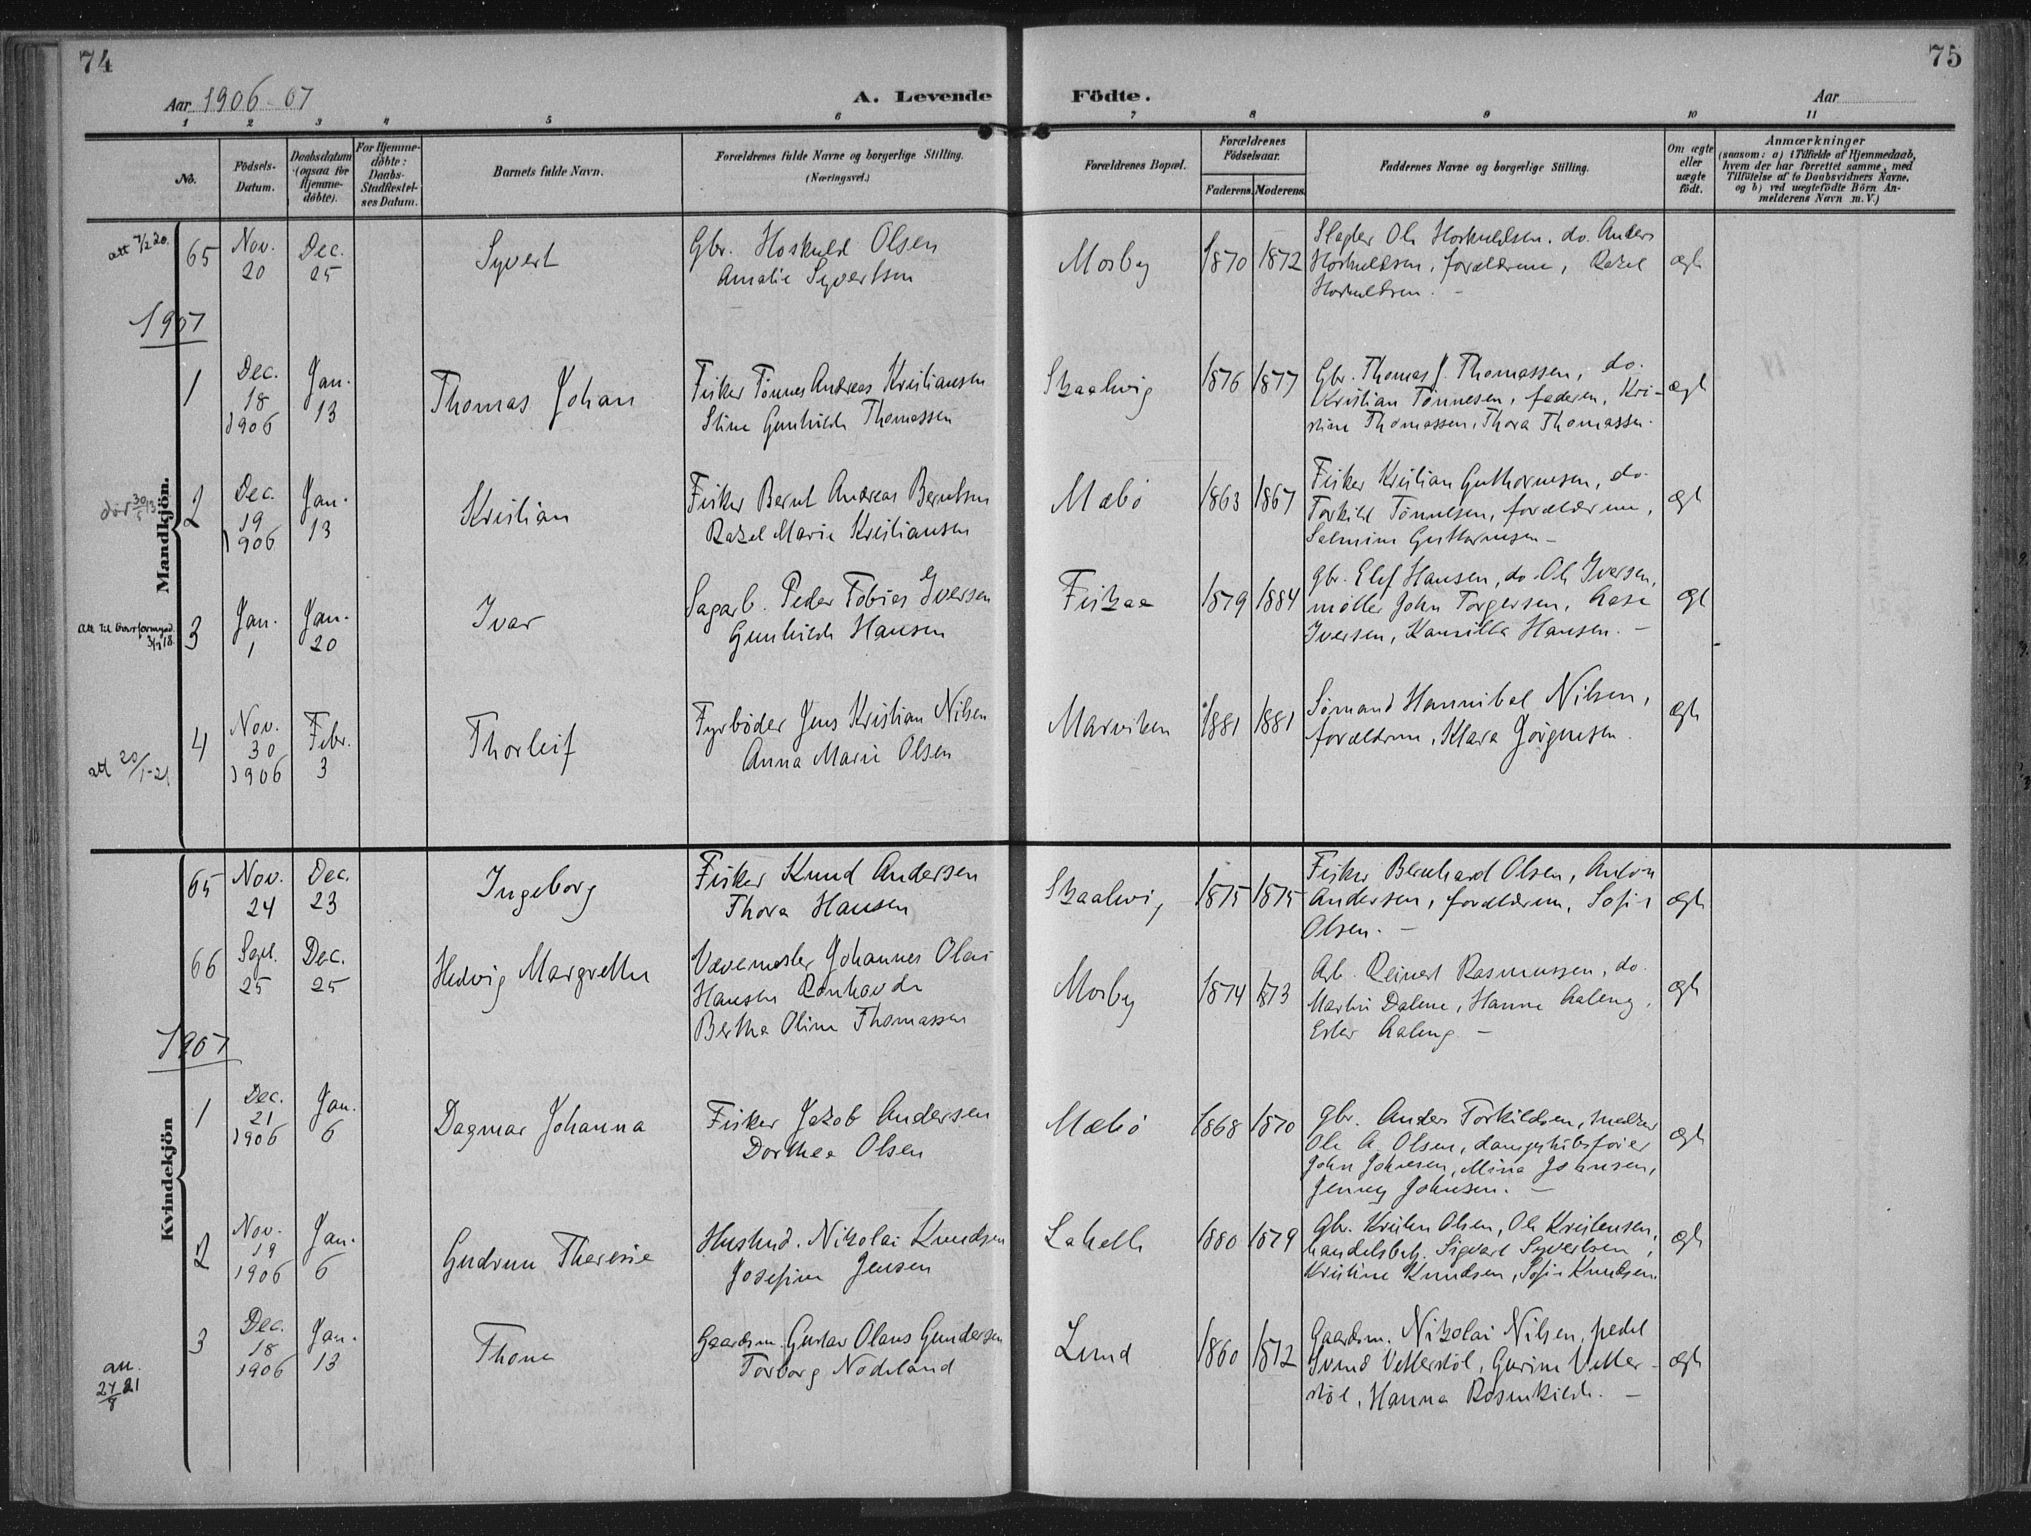 74
75
Aar 1906-07
A. Levende Födte.
Aar
1 2 3 4 5 6 7 8 9 10 11
No.
Födsels-
Datum.
Daabsdatum
(ogsaa for
Hjemme-
döbte).
For Hjemme-
döbte:
Daabs-
Stadfæstel-
ses Datum.
Barnets fulde Navn.
Forældrenes fulde Navne og borgerlige Stilling.
(Næringsvei.)
Forældrenes Bopæl.
Forældrenes
Födselsaar.
Faderens. Moderens.
Faddernes Navne og borgerlige Stilling.
Om ægte
eller
uægte
födt.
Anmærkninger
(saasom: a) i Tilfælde af Hjemmedaab,
hvem der har forrettet samme, med
Tilföielse af to Daabsvidners Navne,
og b) ved uægtefödte Börn An-
melderens Navn m. V.)
Mandkjön.
att 7/2 20.
65
Nov.
20
Dec.
25
Syvert
Gbr. Hoskuld Olsen
Amalie Syvertsen
Mosby
1870
1872
Slagter Ole Hoskuldsen, do. Anders
Hoskuldsen, forældrene, Rakel
Hoskuldsen. -
ægte
1907
1
Dec.
18
1906
Jan.
13
Thomas Johan
Fisker Tønnes Andreas Kristiansen
Stine Gunhilde Thomassen
Skaalevig
1876
1877
Gbr. Thomas J. Thomassen, do.
Kristian Tønnesen, faderen, Kri-
stine Thomassen, Thora Thomassen.
ægte
2
Dec.
19
1906
Jan.
13
Kristian
Fisker Bernt Andreas Berntsen
Rakel Marie Kristiansen
Mæbø
1863
1867
Fisker Kristian Guthormsen, do.
Torkild Tønnesen, forældrene,
Salmine Guthormsen -
ægte
3
Jan.
1
Jan.
20
Ivar
Sagarb. Peder Tobias Iversen
Gunhilde Hansen
Fiskaa
1879
1884
Gbr. Elef Hansen, do. Ole Iversen,
møller John Torgersen, Aase
Iversen, Kamilla Hansen. -
ægte
att 20/1-21
4
Nov.
30
1906
Febr.
3
Thorleif
Fyrbøder Jens Kristian Nilsen
Anna Marie Olsen
Marviken
1881
1881
Sømand Hannibal Nilsen,
forældrene, Klara Jørgensen.
ægte
Kvindekjön
65
Nov.
24
Dec.
23
Ingeborg
Fisker Knud Andersen
Thora Hansen
Skaalevig
1875
1875
Fisker Bernhard Olsen, Anton
Andersen, forældrene, Sofie
Olsen. -
ægte
66
Sept.
25
Dec.
25
Hedvig Margrethe
Vævemester Johannes Olai
Hansen Rønhovde
Bertha Oline Thomassen
Mosby
1874
1873
Arb. Reinert Rasmussen, do.
Martin Dalene, Hanne Aaleng,
Ester Aaleng -
ægte
1907
1
Dec.
21
1906
Jan.
6
Dagmar Johanna
Fisker Jakob Andersen
Dorthea Olsen
Mæbø
1868
1870
Gbr. Anders Torkildsen, snedker
Ole A. Olsen, dampskibsfører
John Johnsen, Mina Johnsen,
Jenny Johnsen. -
ægte
2
Nov.
19
1906
Jan.
6
Gudrun Theresie
Husmd. Nikolai Knudsen
Josefine Jensen
1880
1879
Gbr. Kristen Olsen, Ole Kristensen,
handelsbetj. Sigvart Syvertsen,
Kristine Knudsen, Sofie Knudsen.
ægte
3
Dec.
18
1906
Jan.
13
Thone
Gaardsm. Gustav Olaus Gundersen
Torborg Nodeland
Lund
1860
1872
Gaardsm. Nikolai Nilsen, pedel
Svend Vetterstøl, Gurine Vetter-
støl, Hanna Rosenkilde. -
ægte